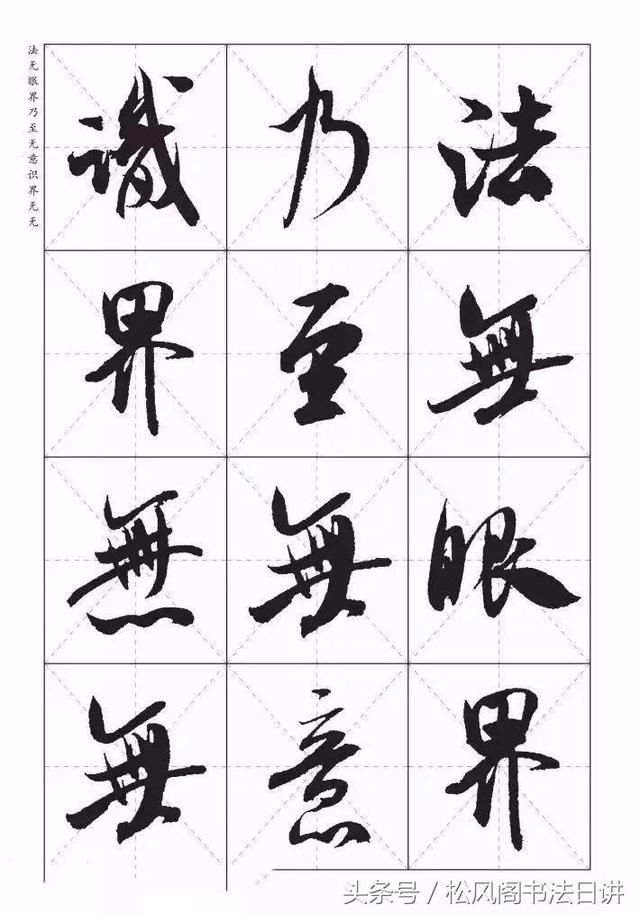 法无眼界乃至无意识界无无
法無眼界
乃至無意
識界無無
头条号/松风阁书法日讲